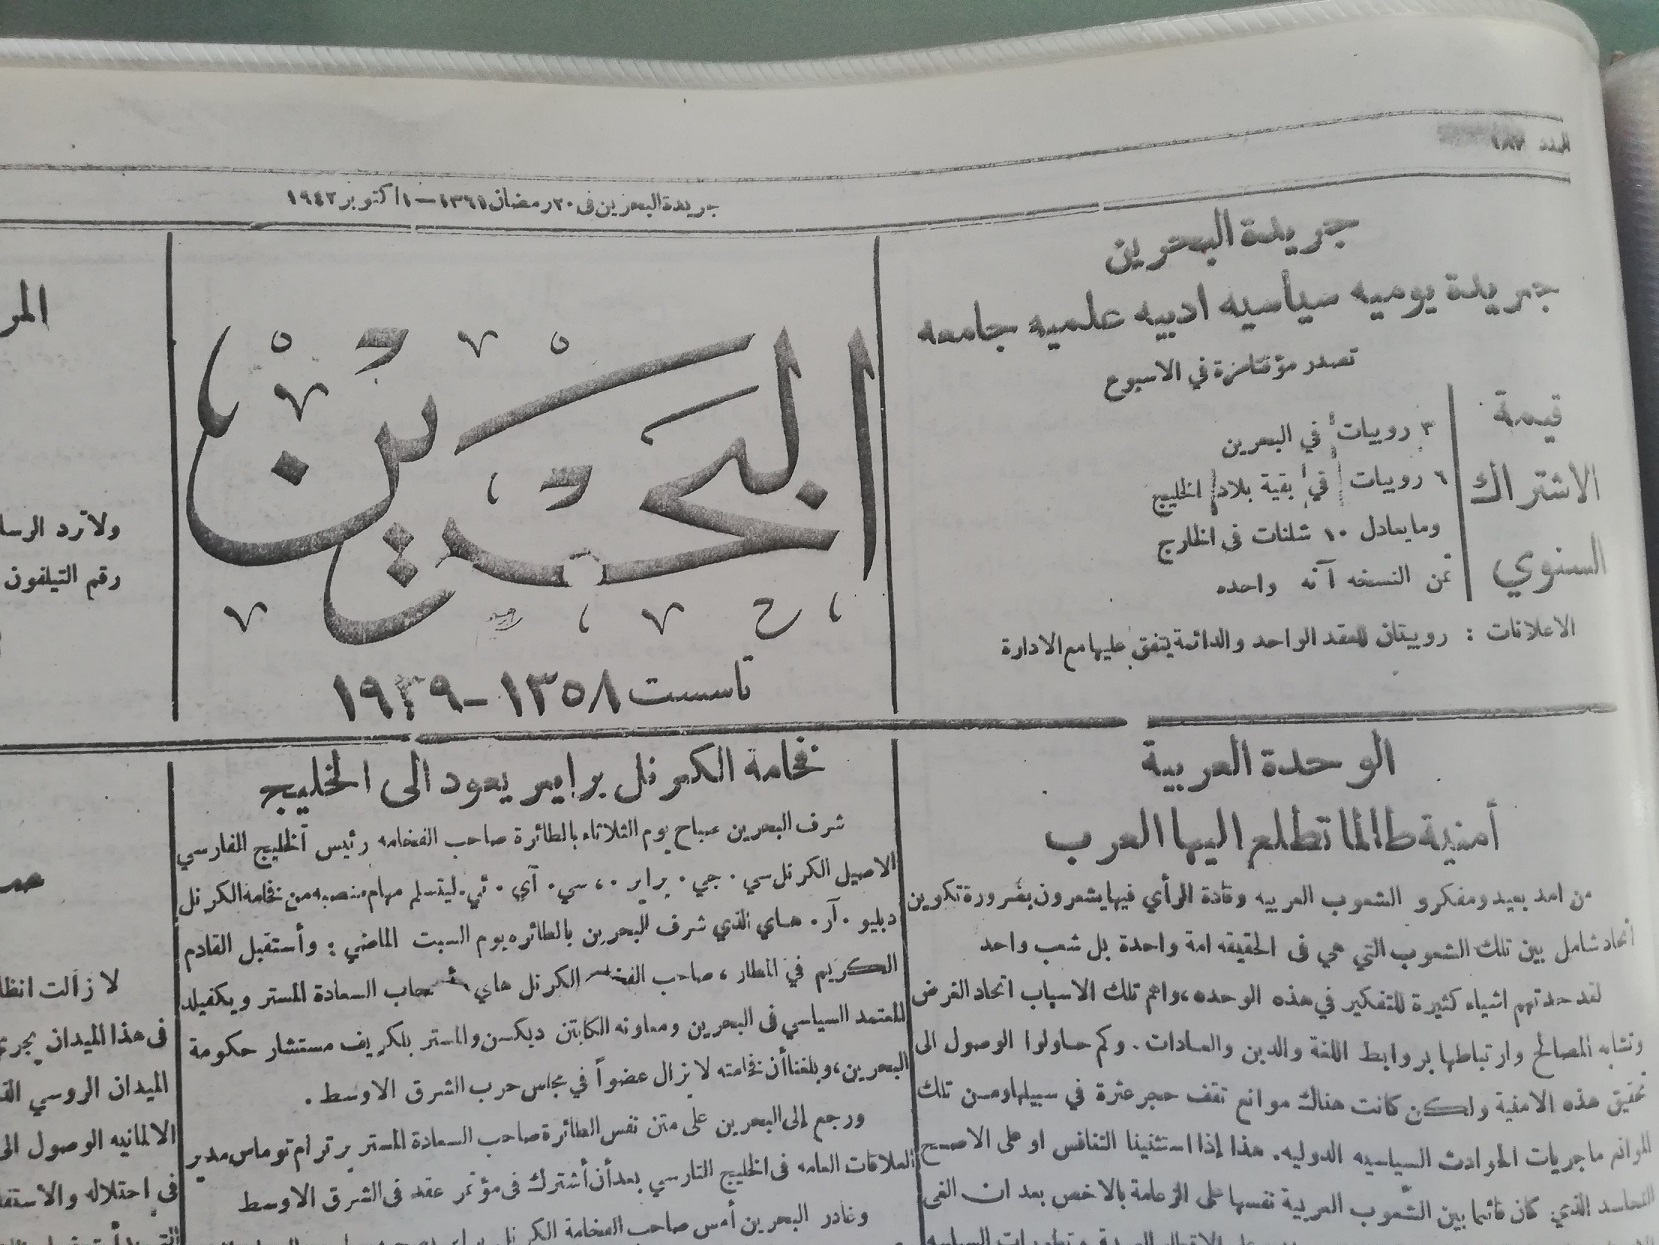 العدد ١٨٧
جريدة البحرين في ٢٠ رمضان ١٣٦١ – ١ اكتوبر ١٩٤٢
جريدة البحرين
جريدة يوميه سياسيه ادبيه علميه جامعه
تصدر مؤقتا مرة في الاسبوع
قيمة
الاشتراك
السنوي
٣ روبيات في البحرين
٦ روبيات في بقية بلاد الخليج
ومايعادل ١٠ شلنات في الخارج
ثمن النسخه آنه واحده
الاعلانات : روبيتان للعقد الواحد والدائمة يتفق عليها مع الادارة
البحرين
تاسست ١٣٥٨ – ١٩٣٩
المر
ولا ترد الرسا
رقم التيلفون
الوحدة العربية
أمنية طالما تطلع اليها العرب
من امد بعيد ومفكرو الشعوب العربيه وقادة الرأي فيها يشعرون بضرورة تكوين
اتحاد شامل بين تلك الشعوب التي هي في الحقيقه امة واحدة بل شعب واحد
لقد حدتهم اشياء كثيرة للتفكير في هذه الوحده، واهم تلك الاسباب اتحاد الغرض
وتشابه المصالح وارتباطها بروابط اللغة والدين والعادات . وكم حاولوا الوصول الى
تحقيق هذه الامنية ولكن كانت هناك موانع تقف حجر عثرة في سبيلها ومن تلك
الموانع ماجريات الحوادث السياسيه الدوليه. هذا إذا استثنينا التنافس او على الاصح
التحاسد الذي كان قائما بين الشعوب العربية نفسها على الزعامة بالاخص بعد ان
فخامة الكرنل براير يعود الى الخليج
شرف البحرين صباح يوم الثلاثاء بالطائرة صاحب الفخامه رئيس الخليج الفارسي
الاصيل الكرنل سي . جي . براير . ، سي . آي . ئي. ليتسلم مهام منصبه من فخامه الكرنل
دبليو . آر . هاي الذي شرف البحرين بالطائره يوم السبت الماضي : وأستقبل القادم
الكريم في المطار ، صاحب الكرنل هاي السعادة المستر ويكفيلد
المعتمد السياسي في البحرين ومعاونه الكابتن ديكسن والمستر بلكريف مستشار حكومة
البحرين، وبلغنا أن فخامته لا يزال عضواً في مجلس حرب الشرق الاوسط .
ورجع إلى البحرين على متن نفس الطائرة صاحب السعادة المستر برترام توماس مدير
العلاقات العامه في الخليج الفارسي بعد أن أشترك في مؤتمر عقد في الشرق الاوسط
وغادر البحرين أمس صاحب الفخامة الكرنل
لا زالت انظا
في هذا الميدان يجري
الميدان الروسي
الالمانيه الوصول الى
في احتلاله والاستفا